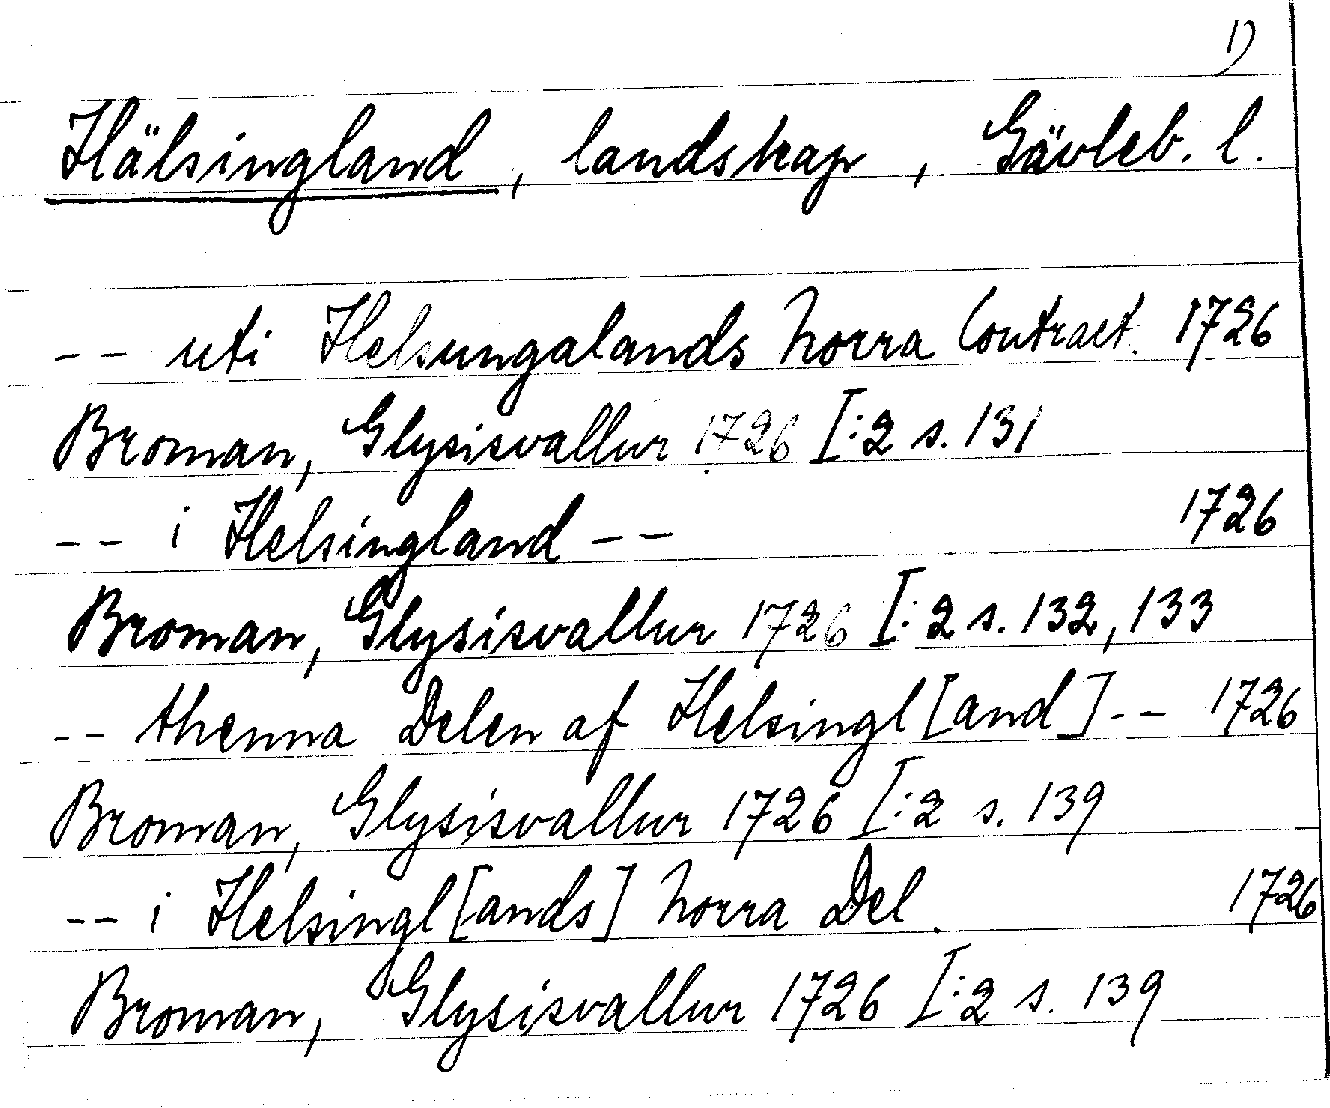 1)
Hälsingland, landskap, Gävleb. l.
-- uti Helsungalands Norra Contract. 1726
Broman, Glysisvallur 1726 I:2 s. 131
-- i Helsingland -- 1726
Broman, Glysisvallur 1726 I:2 s. 132, 133
-- thenna Delen af Helsingl[and] -- 1726
Broman, Glysisvallur 1726 I:2 s. 139
-- i Helsingl[ands] Norra Del. 1726
Broman, Glysisvallur 1726 I:2 s. 139